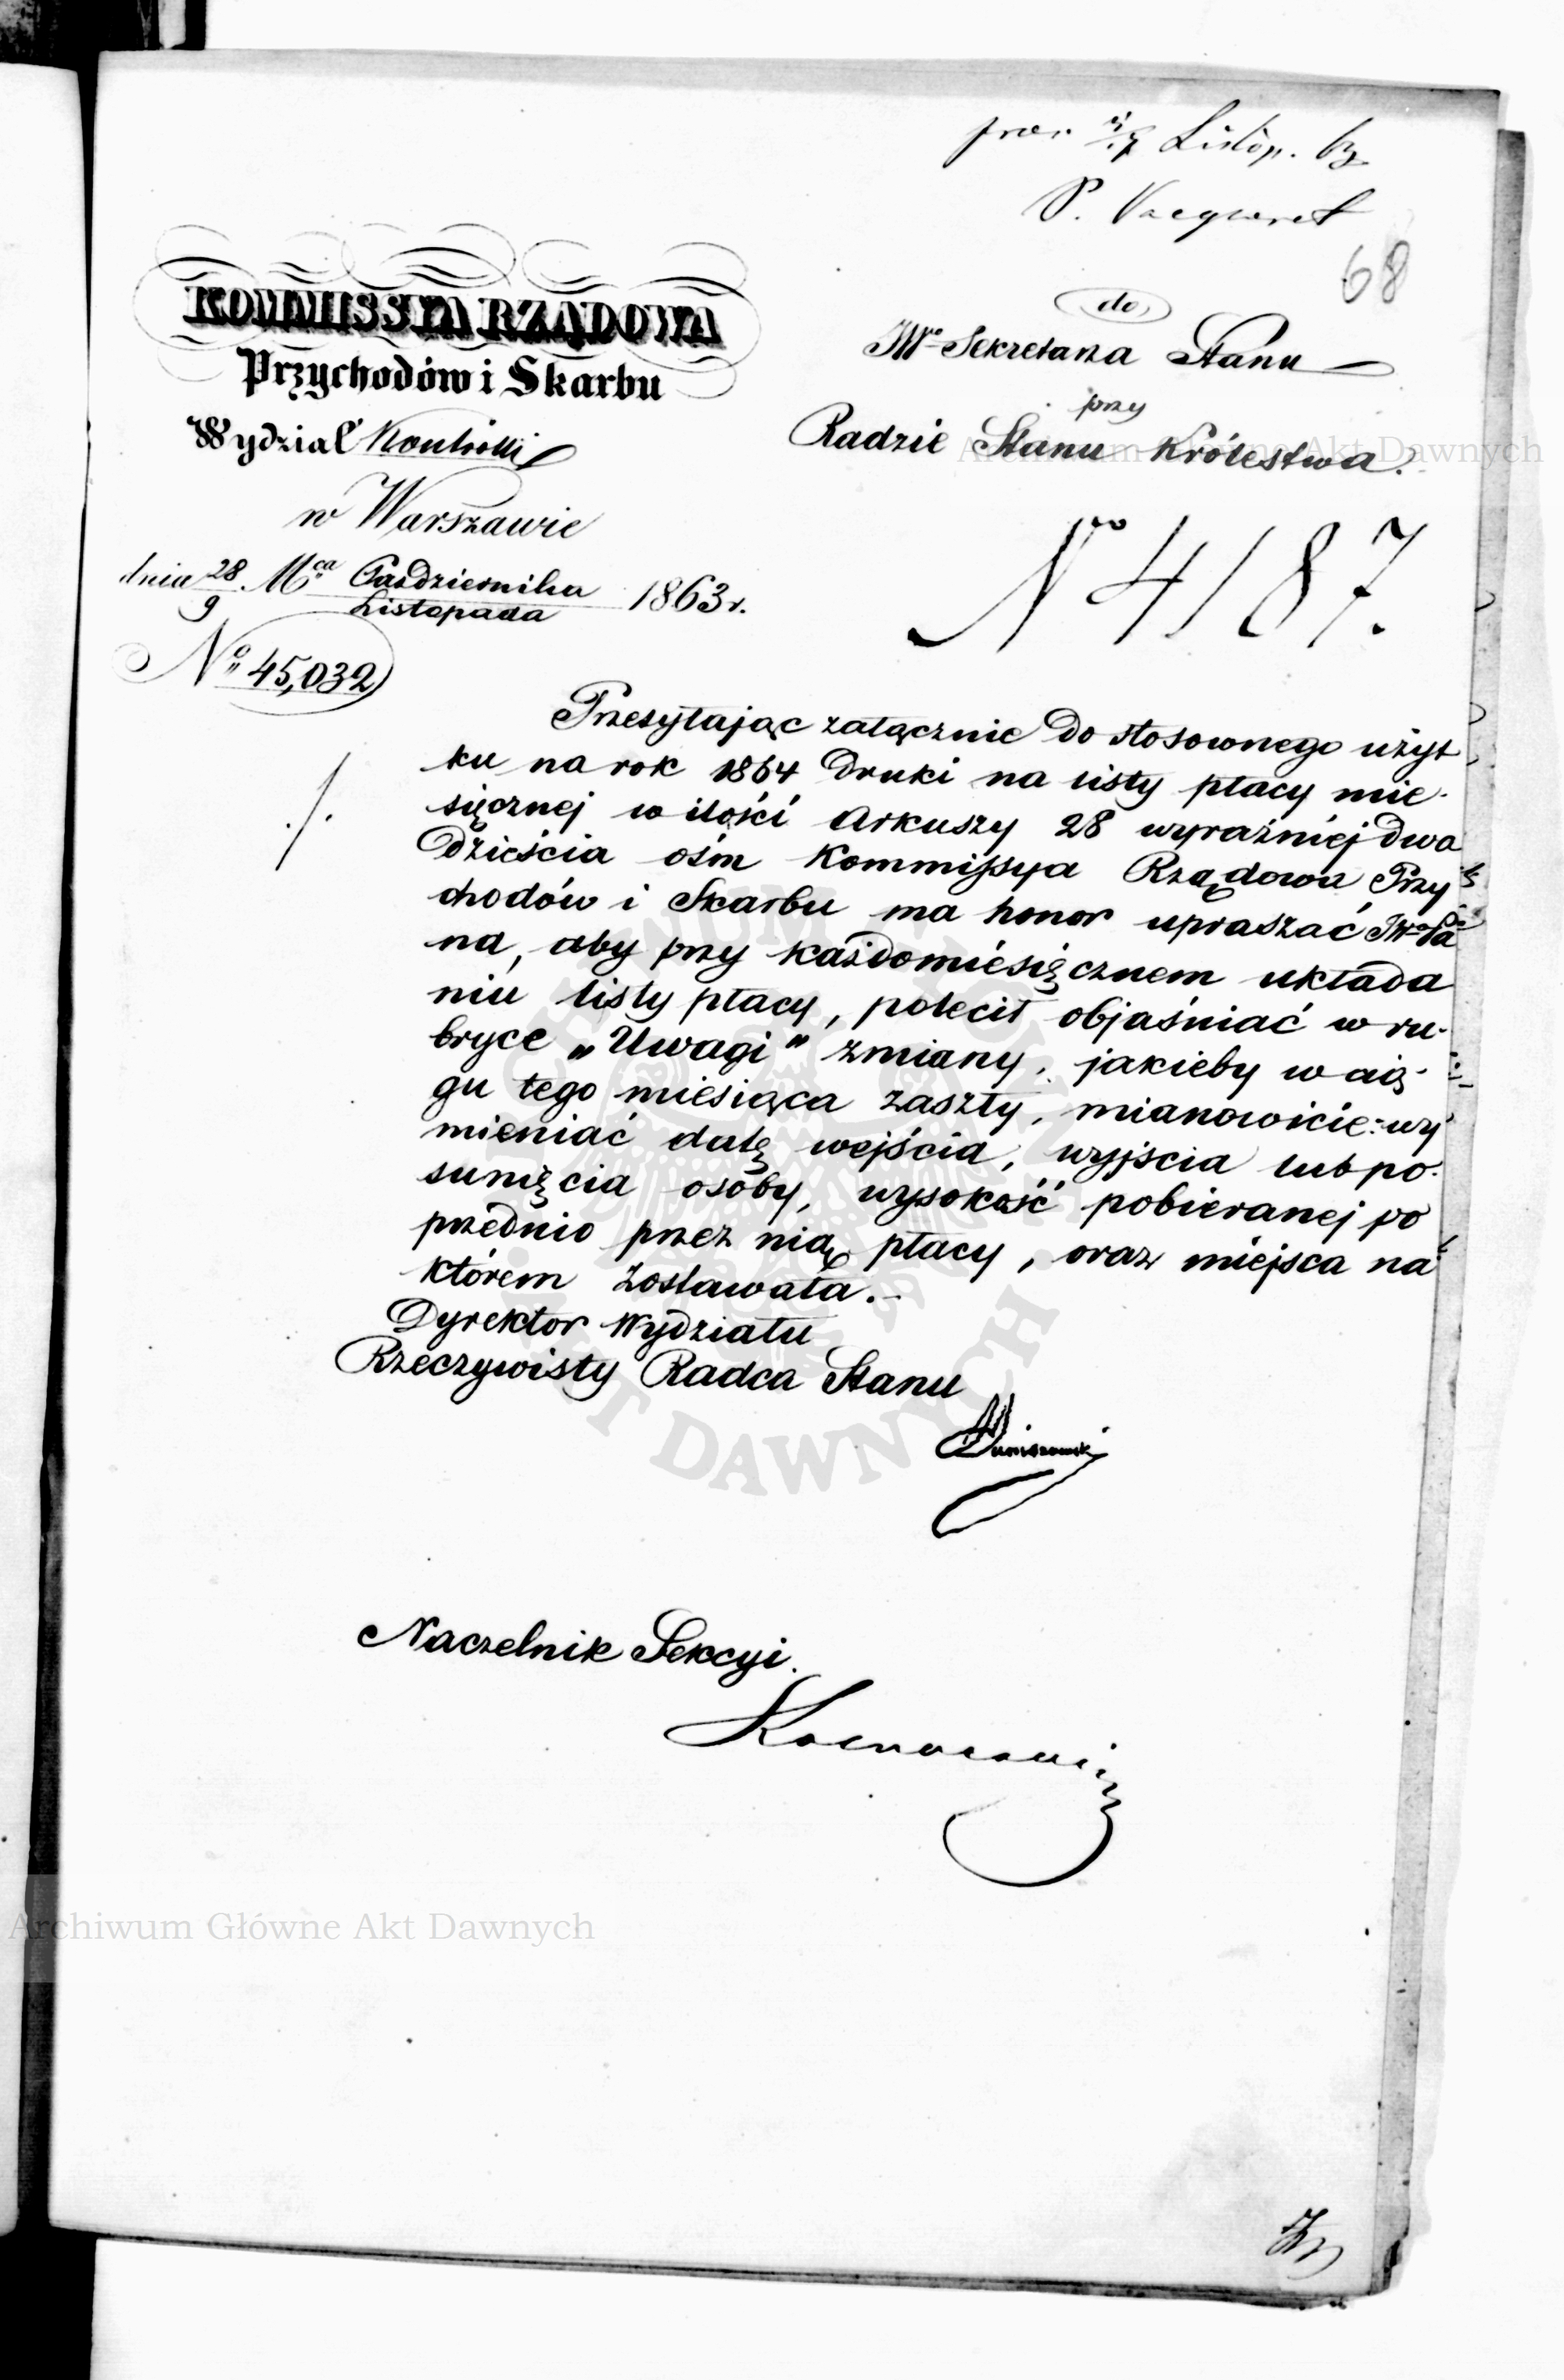 Listop. 63
P.
68
KOMMISSYA RZĄDOWA
Przychodów i Skarbu
Wydział Kontrolli
w Warszawie
dnia 28/9 Mca Października/Listopada 1863 r.
No 45,032
do
JWo Sekretarza Stanu
przy
Radzie Stanu Królestwa.
No 4187.
./.
Przesyłając załącznie do stosownego użyt
ku na rok 1864 druki na listy płacy mie-
sięcznej w ilości Arkuszy 28 wyraźniej dwa
dzieścia ośm Kommissya Rządowa Przy
chodów i Skarbu ma honor upraszać JWo Pa
na, aby przy każdomiesięcznem układa
niu listy płacy, polecił objaśniać w ru-
bryce „Uwagi" zmiany, jakieby w cią-
gu tego miesiąca zaszły, mianowicie: wy
mieniać datę wejścia, wyjścia lub po-
sunięcia osoby, wysokość pobieranej po
przednio przez nią płacy, oraz miejsca na
którem zostawała.-
Dyrektor Wydziału
Rzeczywisty Radca Stanu
Naczelnik Sekcyi.
Archiwum Główne Akt Dawnych
Archiwum Główne Akt Dawnych
ARCHIWUM GŁÓWNE AKT DAWNYCH